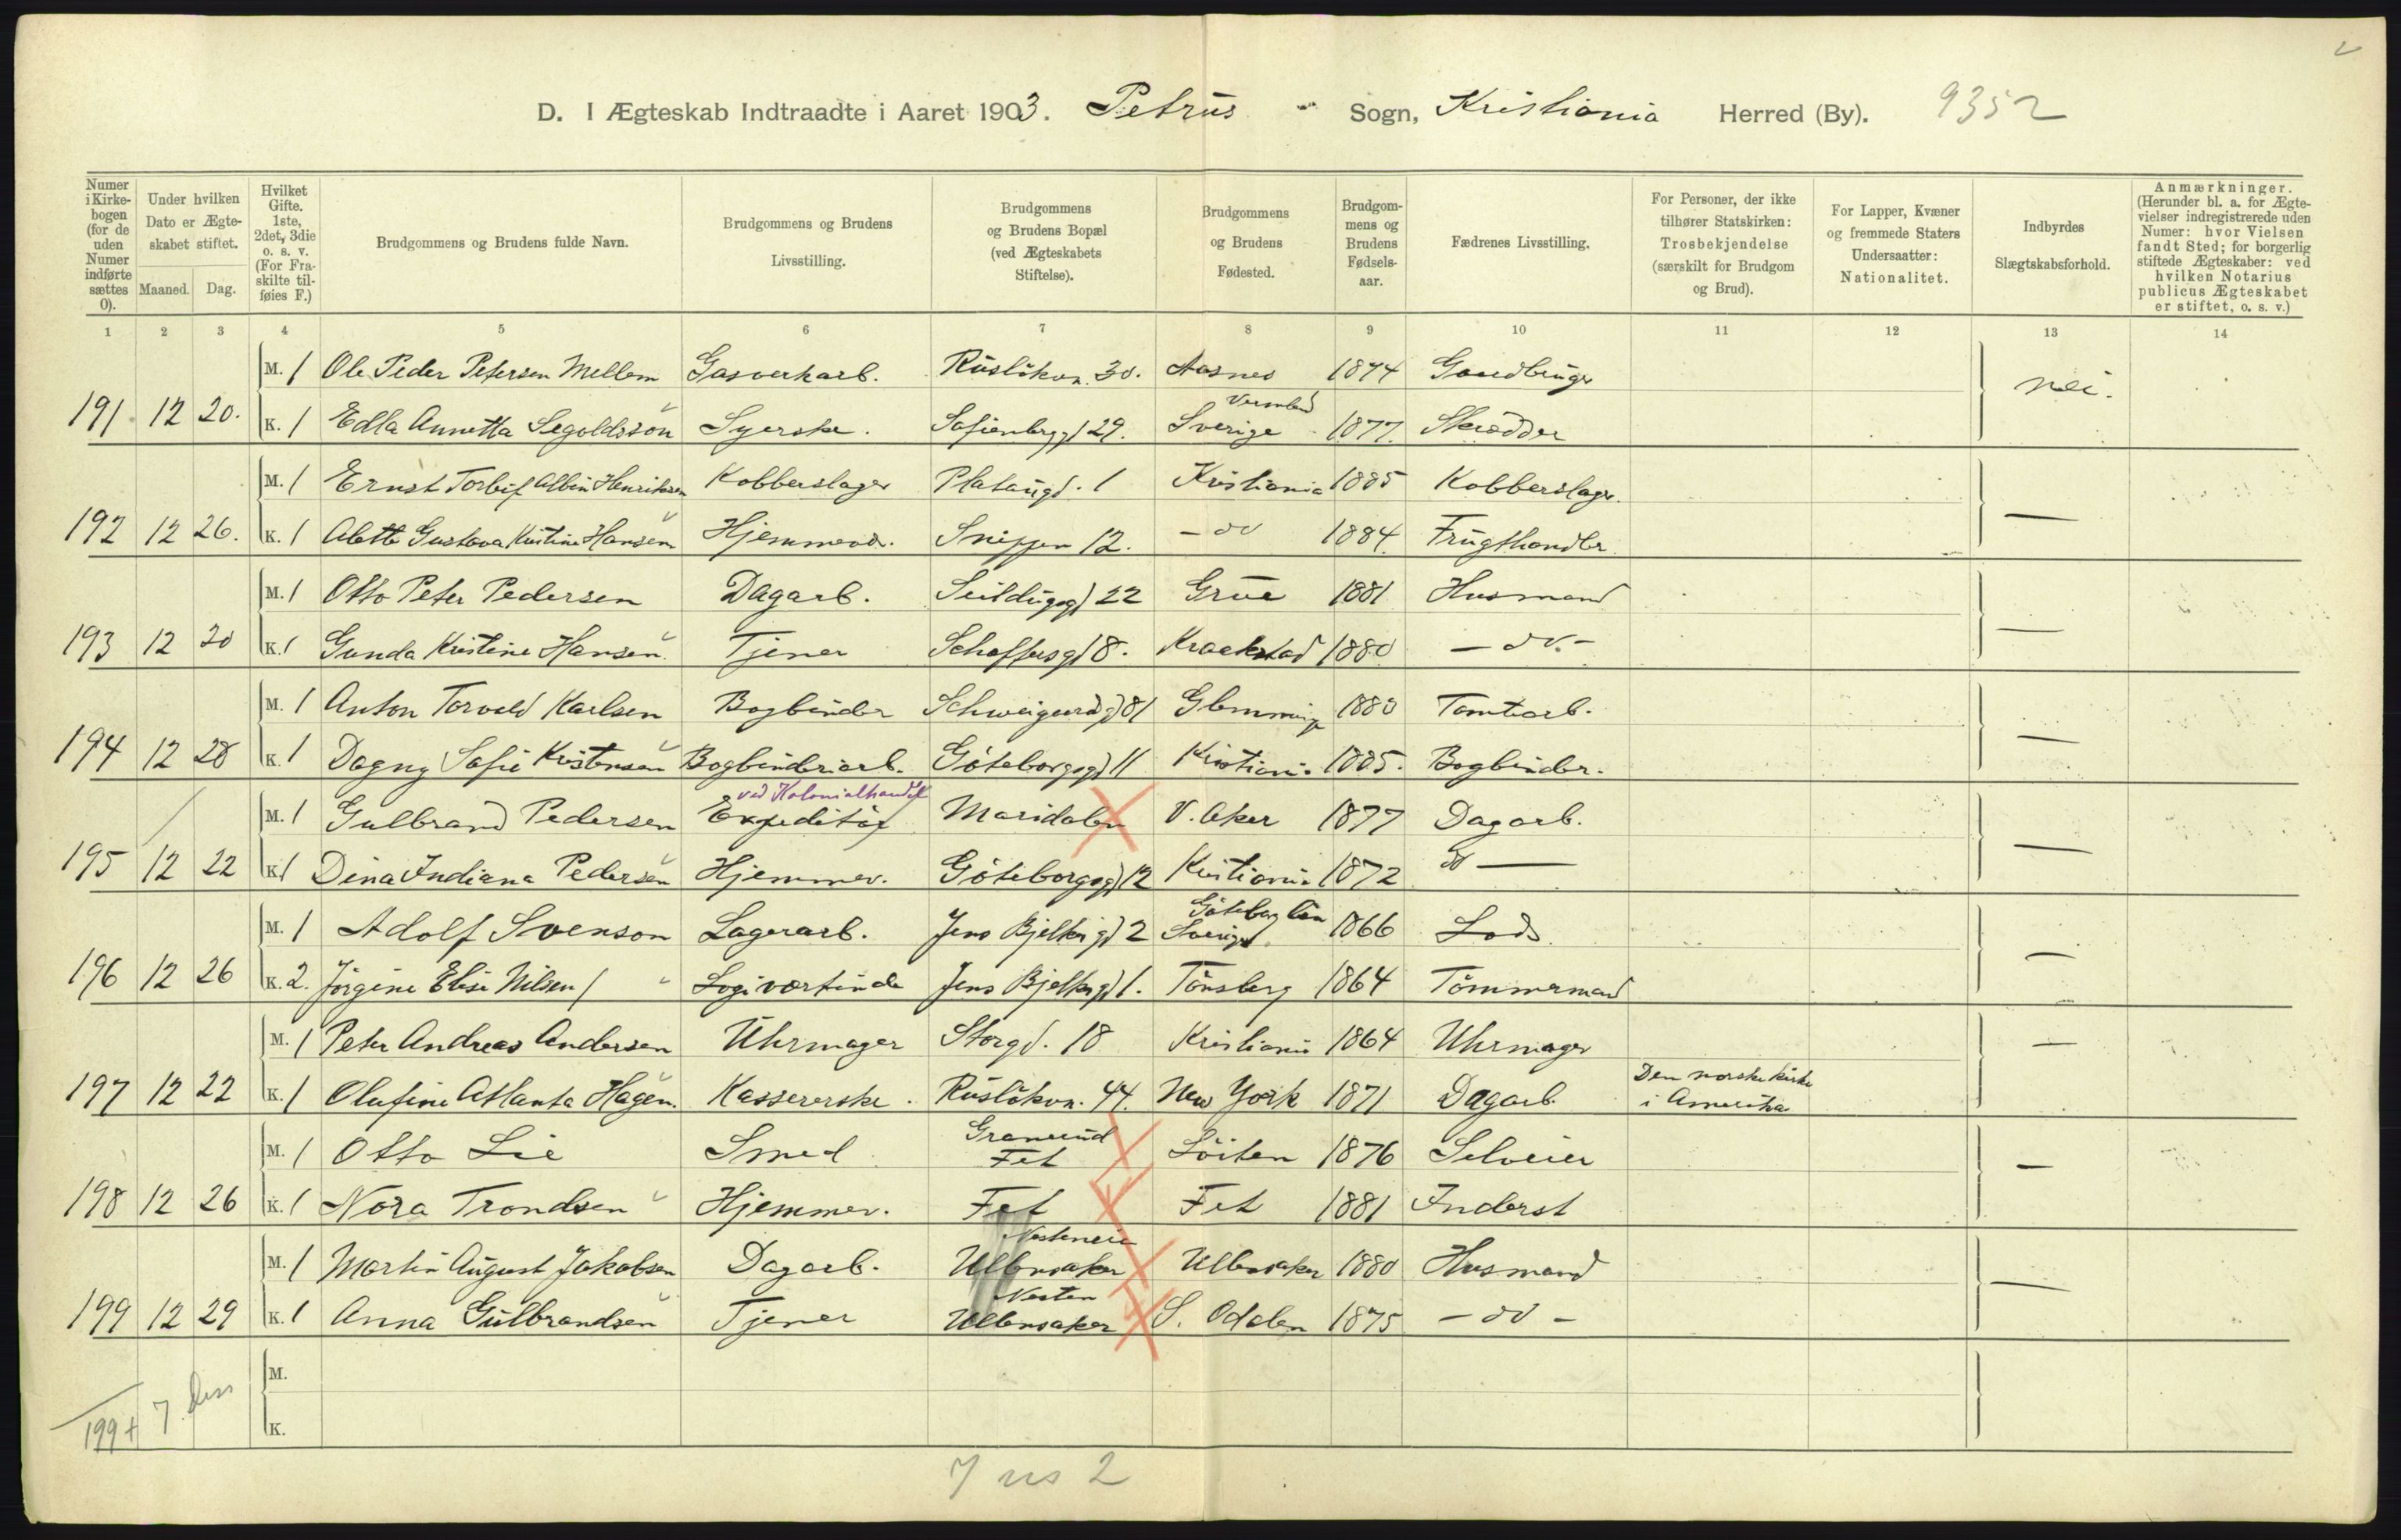 D. I Ægteskab Indtraadte i Aaret 1903. Petrus Sogn, Kristiania Herred (By). 9352
Numer i Kirkebogen (for de uden Numer indførte sættes 0).
Under hvilken Dato er Ægteskabet stiftet.
Maaned. Dag.
Hvilket Gifte. 1ste, 2det, 3die o. s. v. (For Fraskilte tilføies F.)
Brudgommens og Brudens fulde Navn.
Brudgommens og Brudens Livsstilling.
Brudgommens og Brudens Bopæl (ved Ægteskabets Stiftelse).
Brudgommens og Brudens Fødested.
Brudgommens og Brudens Fødselsaar.
Fædrenes Livsstilling.
For Personer, der ikke tilhører Statskirken: Trosbekjendelse (særskilt for Brudgom og Brud).
For Lapper, Kvæner og fremmede Staters Undersaatter: Nationalitet.
Indbyrdes Slægtskabsforhold.
Anmærkninger. (Herunder bl. a. for Ægtevielser indregistrerede uden Numer: hvor Vielsen fandt Sted; for borgerlig stiftede Ægteskaber: ved hvilken Notarius publicus Ægteskabet er stiftet, o. s. v.)
1 2 3 4 5 6 7 8 9 10 11 12 13 14
M. 1 Ole Peder Petersen Mellem Gasverkarb. Rüslökvn. 30. Aasnes 1874 Gaardbruger nei.
191 12 20. K. 1 Edla Annetta Segoldsson Syerske. Sofienberggd 29. Vermland Sverige 1877. Skrædder
M. 1 Ernst Torleif Albin Henriksen Kobberslager Platougd. 1 Kristiania 1885 Kobberslager
192 12 26. K. 1 Alette Gustava Kristine Hansen Hjemmev. Snippen 12. - do 1884. Frugthandler —
M. 1 Otto Peter Pedersen Dagarb. Seildugsgd 22 Grue 1881 Husmand
193 12 20 K. 1 Gunda Kristine Hansen Tjener Scheffersgd 8. Kraakstad 1880 - do - —
M. 1 Anton Torvald Karlsen Bogbinder Schweigaardsgd 81 Glemminge 1880 Tomtearb.
194 12 28 K. 1 Dagny Sofie Kristensen Bogbinderiarb. Göteborgsgd 11 Kristiania 1885. Bogbinder. —
M. 1 Gulbrand Pedersen ved Kolonialhandel Expeditör Maridalen V. Aker 1877 Dagarb.
195 12 22 K. 1 Dina Indiana Pedersen Hjemmev. Göteborgsgd 12 Kristiania 1872 do — —
M. 1 Adolf Svenson Lagerarb. Jens Bjelkesgd 2 Göteborg län Sverige 1866 Lods
196 12 26 K. 2. Jörgine Elise Nilsen Logivertinde Jens Bjelkesgd 1. Tönsberg 1864 Tömmermand —
M. 1 Peter Andreas Andersen Uhrmager Storgd. 18 Kristiania 1864 Uhrmager —
197 12 22 K. 1 Olufine Atlanta Hagen. Kassererske. Rüslökvn. 44. New York 1871 Dagarb. Den norske kirke i Amerika
M. 1 Otto Lie Smed Fet Löiten 1876 Selveier —
198 12 26 K. 1 Nora Trondsen Hjemmev. Fet Fet 1881 Inderst
M. 1 Martin August Jakobsen Dagarb. Ullensaker Ullensaker 1880 Husmand —
199 12 29 K. 1 Anna Gulbrandsen Tjener Ullensaker S. Odalen 1875 - do -
M.
199 + 7 K.
7 us 2